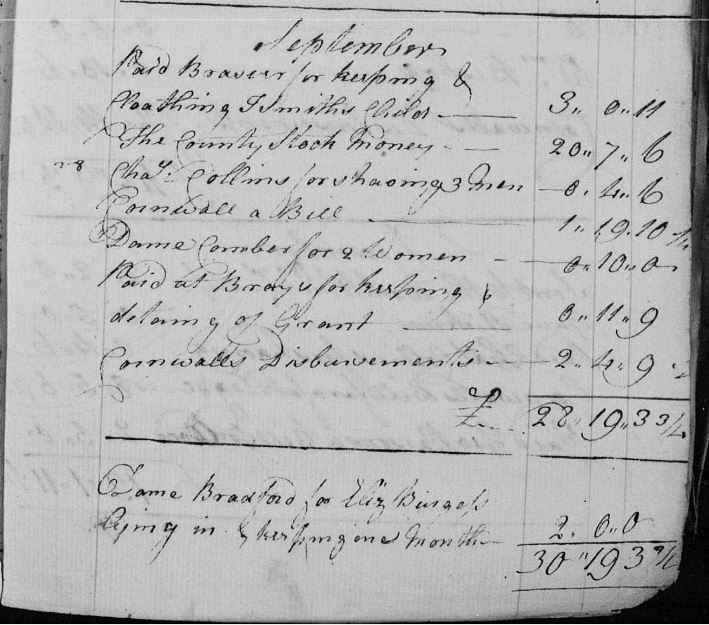 September
Paid Braseur for keeping &
Cloathing J Smiths Child 3,, 0,, 11
The County Stock Money 20,, 7,, 6
28 Chas. Collins for shaving 3 Men 0,, 4,, 6
Cornwall a Bill 1,, 19,, 10
Dame Comber for 2 Women 0,, 10,, 0
Paid at Brays for keeping &
detaing of Grant 0,, 11,, 9
Cornwalls Disbursements 2,, 4,, 9
£ 28,, 19,, 3 3/4
Dame Bradford for Eliz Burgess
lying in & keeping one Month 2,, 0,, 0
30,, 19 3 3/4